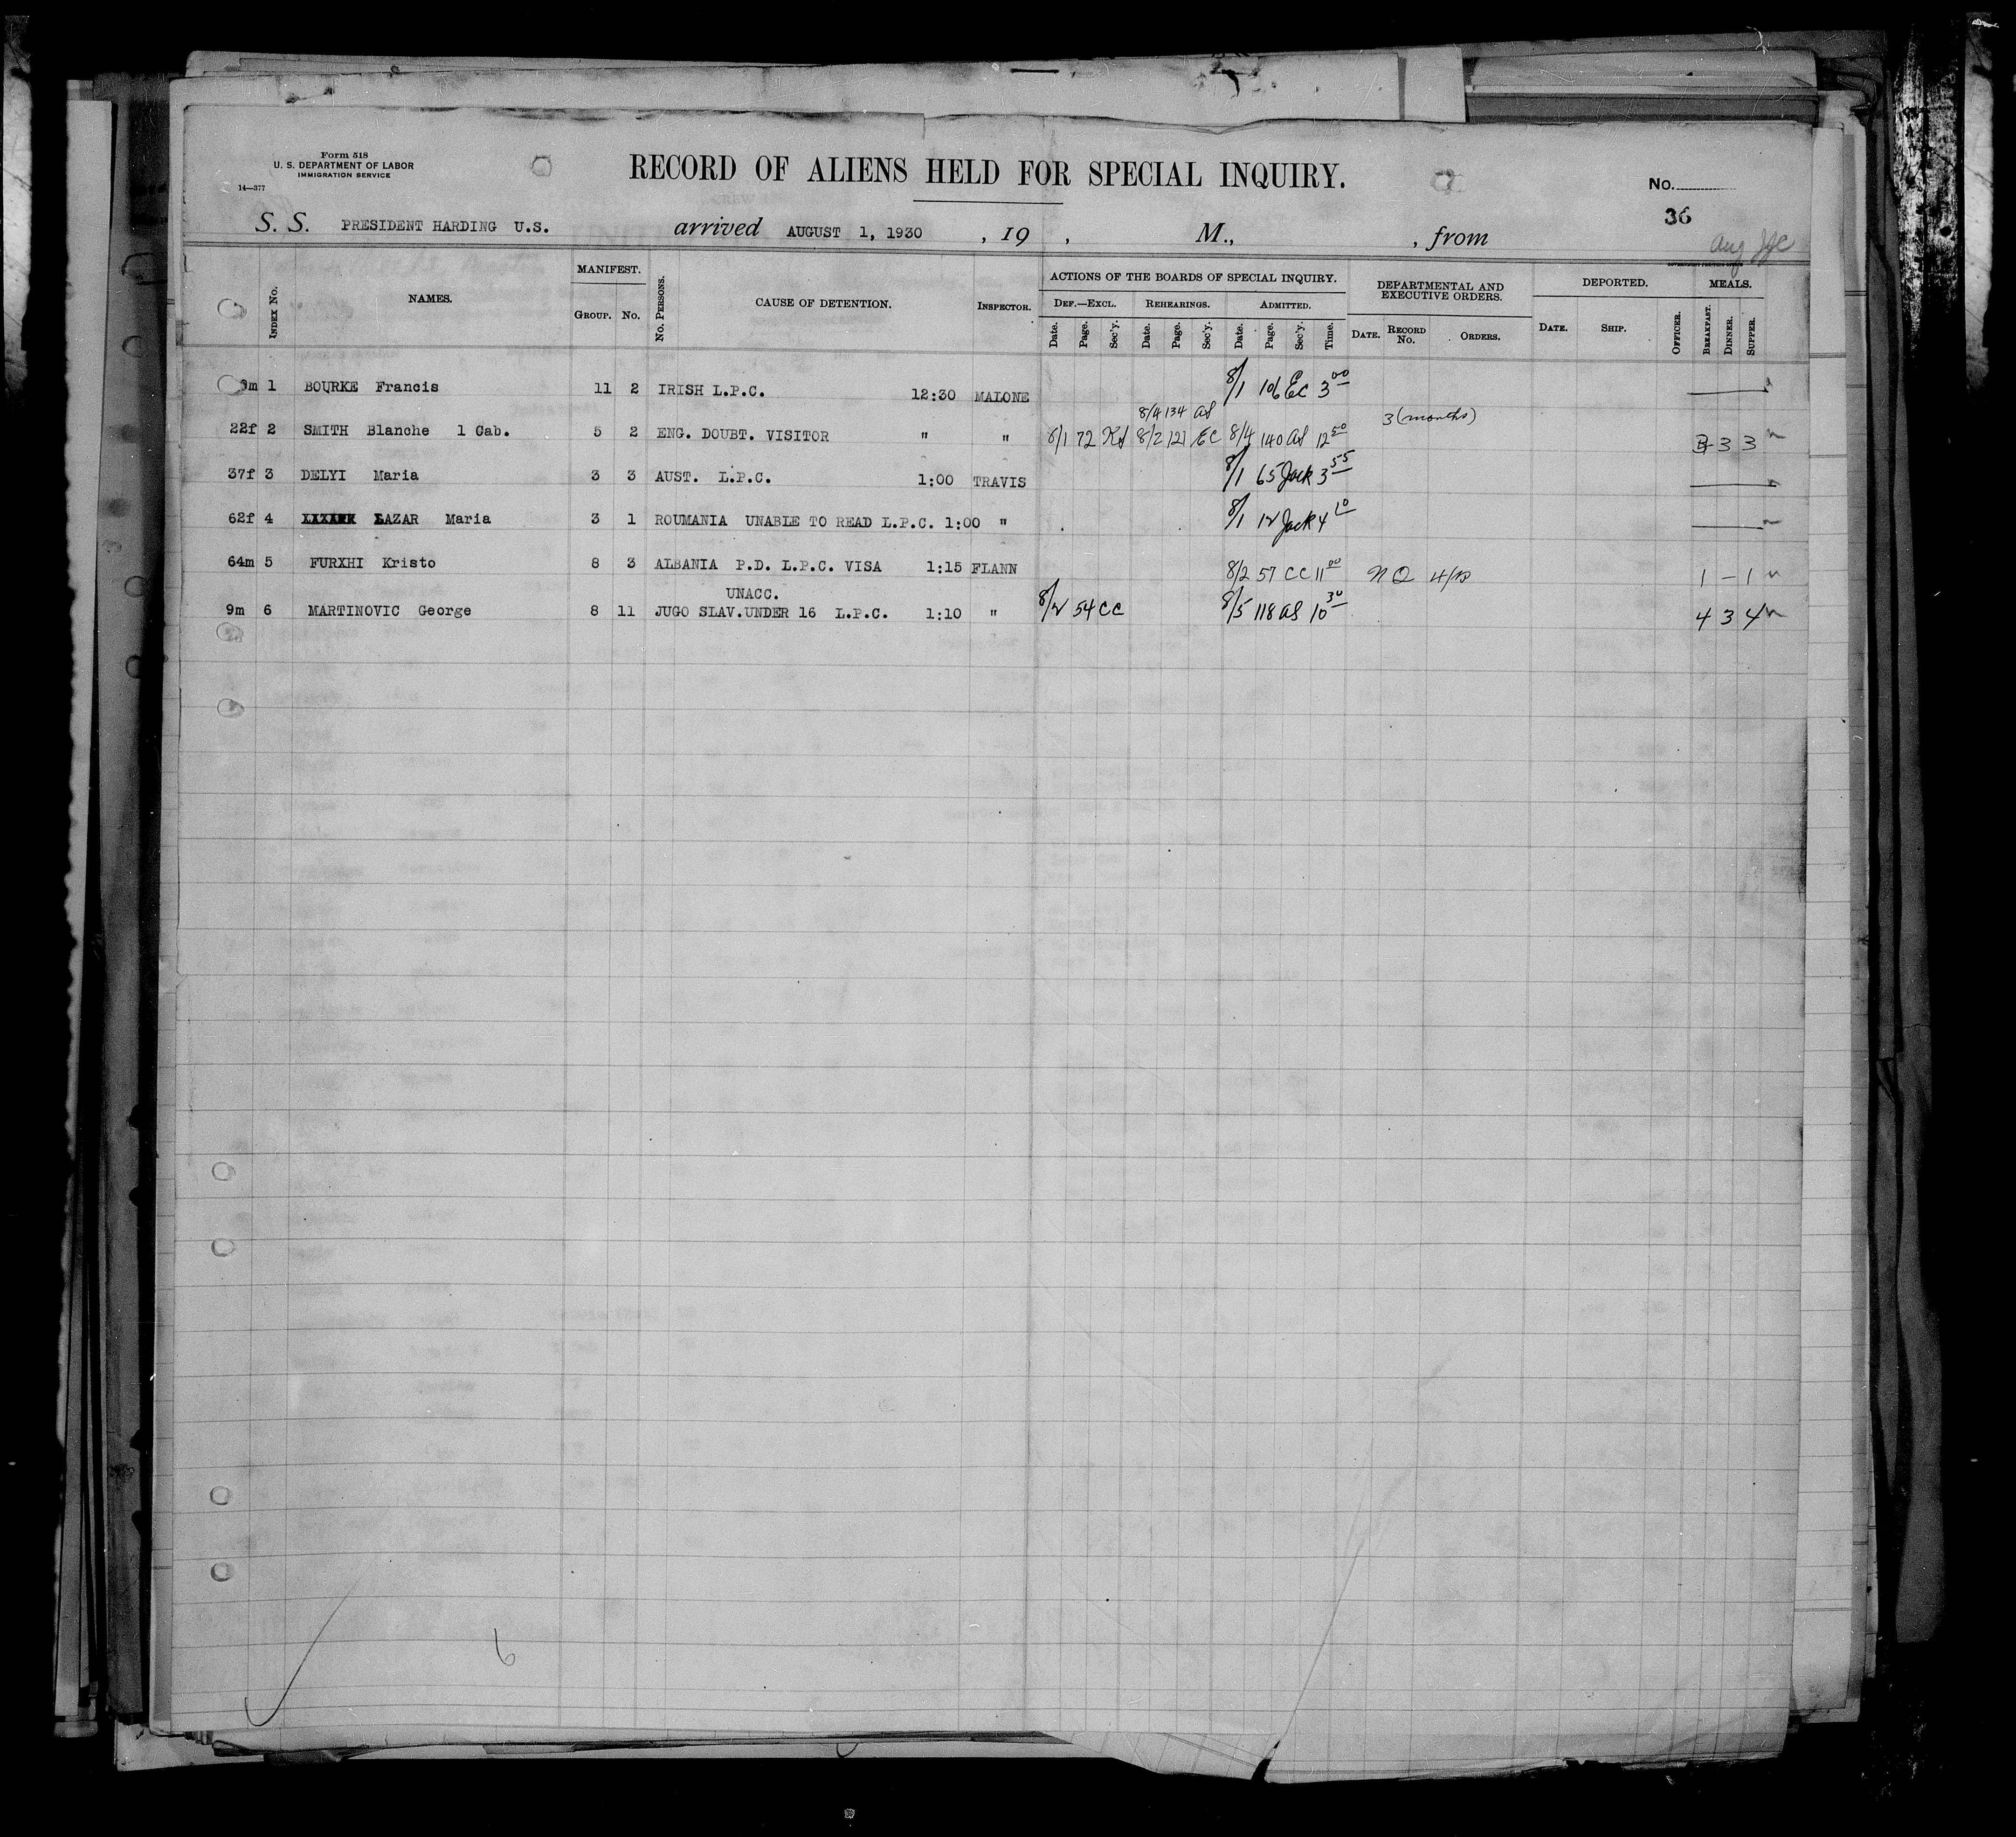 Form 518
U. S. DEPARTMENT OF LABOR
IMMIGRATION SERVICE
14—377
RECORD OF ALIENS HELD FOR SPECIAL INQUIRY.
No.
36
S. S. PRESIDENT HARDING U.S. arrived AUGUST 1, 1930 , 19 , M., , from
Aug
INDEX No. NAMES. MANIFEST. GROUP. No. No. PERSONS. CAUSE OF DETENTION. INSPECTOR. ACTIONS OF THE BOARDS OF SPECIAL INQUIRY. DEPARTMENTAL AND EXECUTIVE ORDERS. DEPORTED. MEALS.
DEF.—EXCL. REHEARINGS. ADMITTED.
Date. Page. Sec'y. Date. Page. Sec'y. Date. Page. Sec'y. Time. DATE. RECORD No. ORDERS. DATE. SHIP. OFFICER. BREAKFAST. DINNER. SUPPER.
m 1 BOURKE Francis 11 2 IRISH L.P.C. 12:30 MALONE 8/1 106 EC 3 00
8/4 134 AS 3 (months)
22f 2 SMITH Blanche 1 Cab. 5 2 ENG. DOUBT. VISITOR " " 8/1 72 8/2 121 EC 8/4 140 AS 12 50 3 3 3
37f 3 DELYI Maria 3 3 AUST. L.P.C. 1:00 TRAVIS 8/1 65 Jack 3 55
62f 4 LAZAR Maria 3 1 ROUMANIA UNABLE TO READ L.P.C. 1:00 " 8/1 12 Jack 4 10
64m 5 FURXHI Kristo 8 3 ALBANIA P.D. L.P.C. VISA 1:15 FLANN 8/2 57 CC 11 00 1 – 1
UNACC.
9m 6 MARTINOVIC George 8 11 JUGO SLAV. UNDER 16 L.P.C. 1:10 " 8/2 54 CC 8/5 118 AS 10 30 4 3 4
6